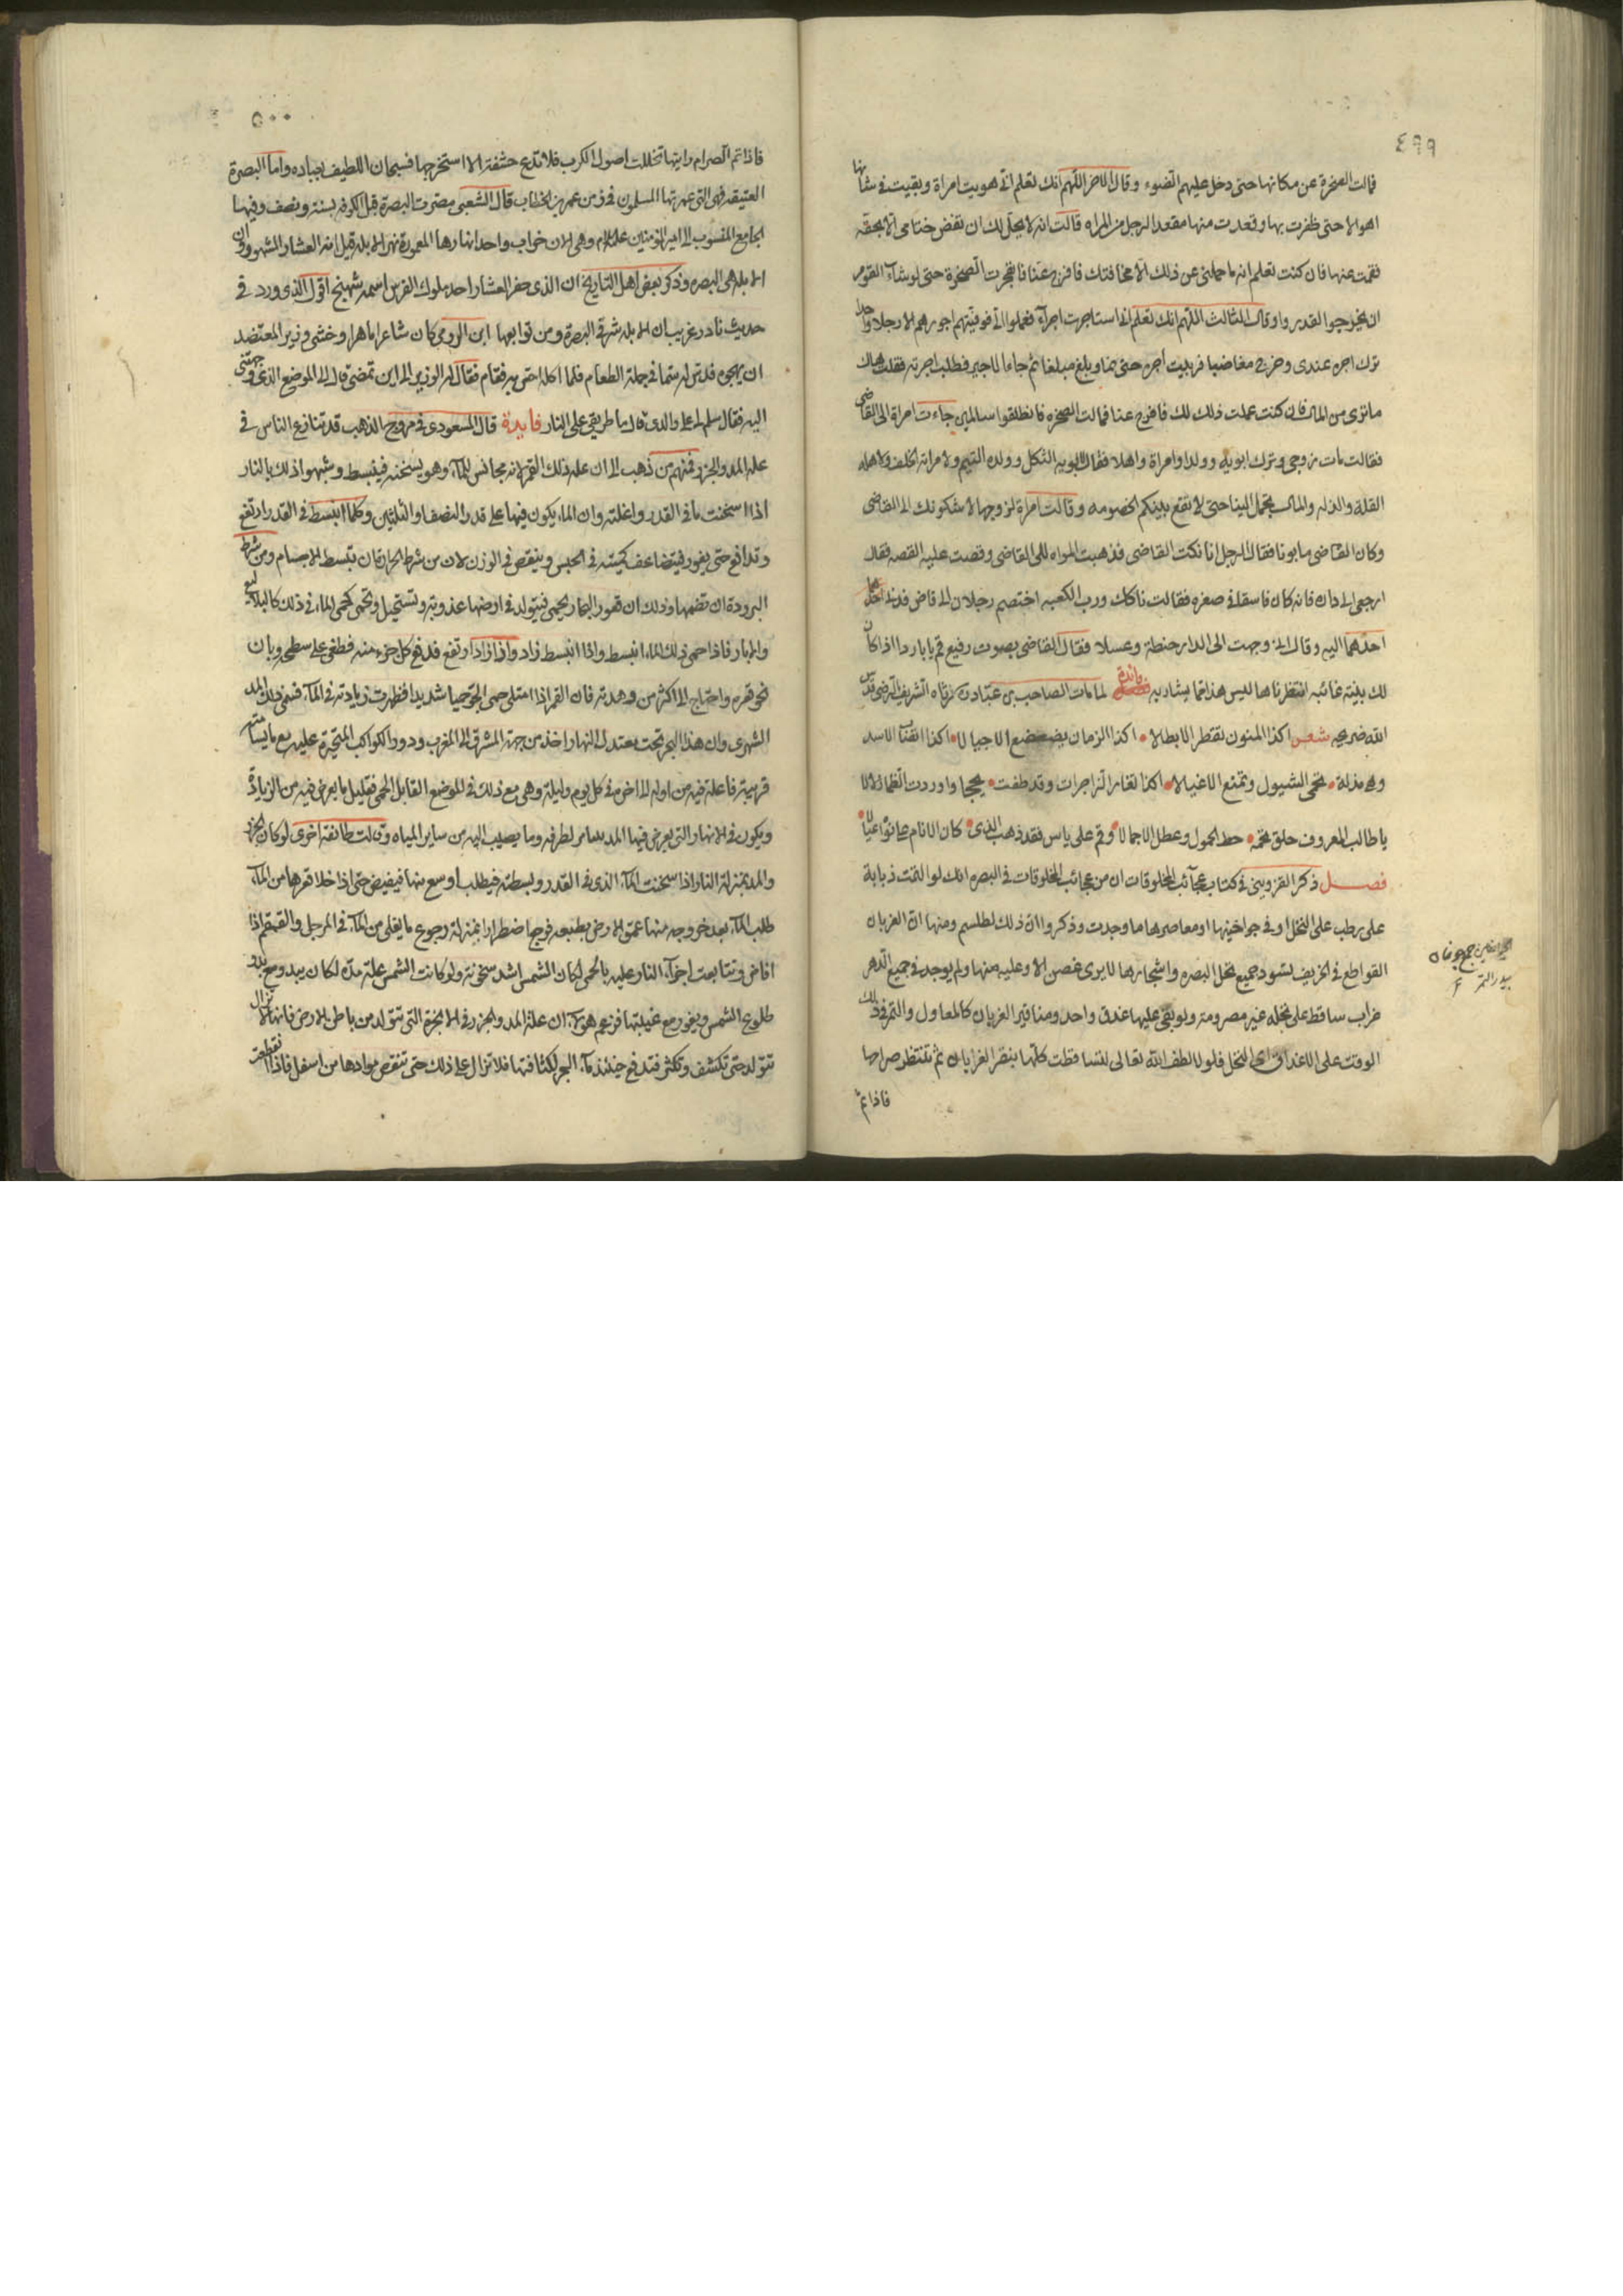 ٤٩٩
فمالت الصخرة عن مكانها حتى دخل عليهم الضوء وقال الاخر اللهم انك تعلم اني هويت امراة وبقيت في شانها
اهوالا حتى ظفرت بها وقعدت منها مقعد الرجل من المراه قالت انه لا يحل لك ان تفض ختامي الا بحقه
فقمت عنها فان كنت تعلم انه ما حملني عن ذلك الا مخافتك فافرج عنا فانفجرت الصخرة حتى لو شاء القوم
ان يخرجوا لقدروا وقال الثالث اللهم انك تعلم اني استاجرت اجراء فعملوا لي فوفيتهم اجورهم الا رجلا واحدا
ترك اجره عندي وخرج مغاضبا فربيت اجره حتى نما وبلغ مبلغا ثم جاء الاجير فطلب اجرته فقلت هاك
ما ترى من المال فان كنت عملت ذلك لك فافرج عنا فمالت الصخره فانطلقوا سالمين جاءت امراة الى القاضي
فقالت مات زوجي وترك ابويه وولدا وامراة واهلا فقال لابويه الثكل وولده اليتيم ولامراته الخلف ولاهله
القلة والذله والمال يحمل الينا حتى لا يقع بينكم الخصومه وقالت امراة لزوجها لاشكونك الى القاضي
وكان القاضي مابونا فقال الرجل انا نكت القاضي فذهبت المراه الى القاضي وقصت عليه القصه فقال
ارجعي الى داره فانه كان فاسقا في صغره فقالت ناكك ورب الكعبه اختصم رجلان الى قاض فدنا
احدهما اليه وقال اني وجهت الى الدار حنطة وعسلا فقال القاضي بصوت رفيع قم يا بارد اذا كان
لك بينة غائبه انتظرناها ليس هذا مما يسار به فائدة لما مات الصاحب بن عباد رثاه الشريف الرضي قدس
الله ضريحه شعر اكذا المنون تقنطر الابطالا اكذا الزمان يضعضع الاجيالا اكذا تصاب الاسد
وهي مذلة تحمي الشبول وتمنع الاغيالا اكذا تغاض الزاخرات وقد طغت لججا واوردت الظماء زلالا
يا طالب المعروف حلق نجمه حط الحمول وعطل الاجمالا وقم على ياس فقد ذهب الذي كان الانام على نداه عيالا
فصل ذكر القزويني في كتاب عجائب المخلوقات ان من عجائب المخلوقات في البصره انك لو التمست ذبابة
على رطب على النخل او في جواخينها او معاصرها ما وجدت وذكروا ان ذلك لطلسم ومنها ان الغربان
القواطع في الخريف تسود جميع نخل البصره واشجارها لا يرى غصن الا وعليه منها ولم يوجد في جميع الدهر
غراب ساقط على نخله غير مصرومة ولو بقي عليها عذق واحد ومناقير الغربان كالمعاول والتمر في ذلك
الوقت على الاعذاق النخل فلولا لطف الله تعالى لتساقطت كلها بنقر الغربان ثم تنتظر صرامها
فاذا تم
٥٠٠
فاذا تم الصرام رايتها تخللت اصول الكرب فلا تدع حشفة الا استخرجها فسبحان اللطيف بعباده واما البصرة
العتيقه فهي التي عمرتها المسلمون في زمن عمر بن الخطاب قال الشعبي مصرت البصرة قبل الكوفه بسنة ونصف وفيها
الجامع المنسوب الى امير المؤمنين عليه السلام وهي الان خراب واحد انهارها المعمورة نهر الابله قيل انه العشار المشهور وان
الابله هي البصره وذكر بعض اهل التاريخ ان الذي حفر العشار احد ملوك الفرس اسمه شهبنج اقول الذي ورد في
حديث نادر غريب ان الابله شرقي البصرة ومن توابعها ابن الرومي كان شاعرا ماهرا وخشي وزير المعتضد
ان يهجوه فدس له سما في جملة الطعام فلما اكله احس به فقام فقال له الوزير الى اين تمضي قال الى الموضع الذي وجهتني
اليه فقال سلم لي على والدي قال ما طريقي على النار فايدة قال المسعودي في مروج الذهب قد تنازع الناس في
علة المد والجزر فمنهم من ذهب الى ان علة ذلك القمر لانه مجانس للماء وهو يسخنه فينبسط وشبهوا ذلك بالنار
اذا اسخنت ما في القدر واغلته وان الماء يكون فيها على قدر النصف او الثلثين وكلما انبسط في القدر ارتفع
وتدافع حتى يفور فيتضاعف كميته في الحبس وينقص في الوزن لان من شرط الحرارة ان تبسط الاجسام ومن شرط
البرودة ان تضمها وذلك ان قعور البحار تحمى فيتولد في ارضها عذوبة وتستحيل وتحمى كحمي الماء في ذلك كالبلاليع
والابار فاذا حمى ذلك الماء انبسط واذا انبسط زاد واذا زاد ارتفع فدفع كل جزء منه فطغى على سطحه وبان
نحو قعره واحتاج الى اكثر من وهدته فان القمر اذا امتلى حمى الجو حميا شديدا فظهرت زيادته في الماء فسمى ذلك المد
الشهري وان هذا البحر تحت معتدل النهار اخذ من جهة المشرق الى المغرب ودور الكواكب المتحيرة عليه مع ما يسامته
قريبة فاعلة فيه من اوله الى اخره في كل يوم وليلة وهي مع ذلك في الموضع القابل الحمى فقليل ما يعرض فيه من الزيادة
ويكون في الانهار التي يعرض فيها المد لطرفه وما يصيب اليه من ساير المياه وقالت طائفة اخرى لو كان الجزر
والمد بمنزلة النار اذا سخنت الماء الذي في القدر وبسطته فيطلب اوسع منها فيفيض حتى اذا خلا قعرها من الماء
طلب الماء بعد خروجه منها عمق الارض بطبعه فرجع اضطرارا بمنزلة رجوع ما يغلى من الماء في المرجل والقمقم اذا
افاض وتتابعت اجزاء النار عليه بالحمى لكان الشمس اشد سخونة ولو كانت الشمس علة مده لكان يبدو مع بدو
طلوع الشمس ويغور مع غيبتها فزعم هؤلاء ان علة المد والجزر في الابخرة التي تتولد من باطن الارض فانها لا تزال
تتولد حتى تكثف وتكثر فتدفع حينئذ ماء البحر لكثافتها فلا تزال على ذلك حتى تنقص موادها من اسفل فاذا انقطعت